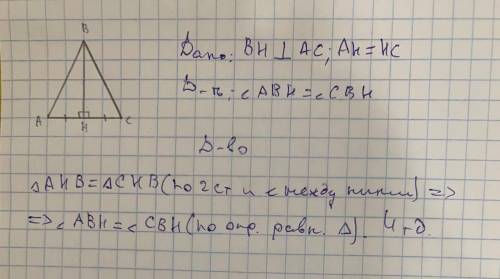 B
A H C
Дано: BH ⊥ AC; AH = HC
Д-ть: ∠ABH = ∠CBH
Д-во
△AHB = △CHB (по 2 ст и ∠ между ними) =>
=> ∠ABH = ∠CBH (по опр. равн. △). Чтд.